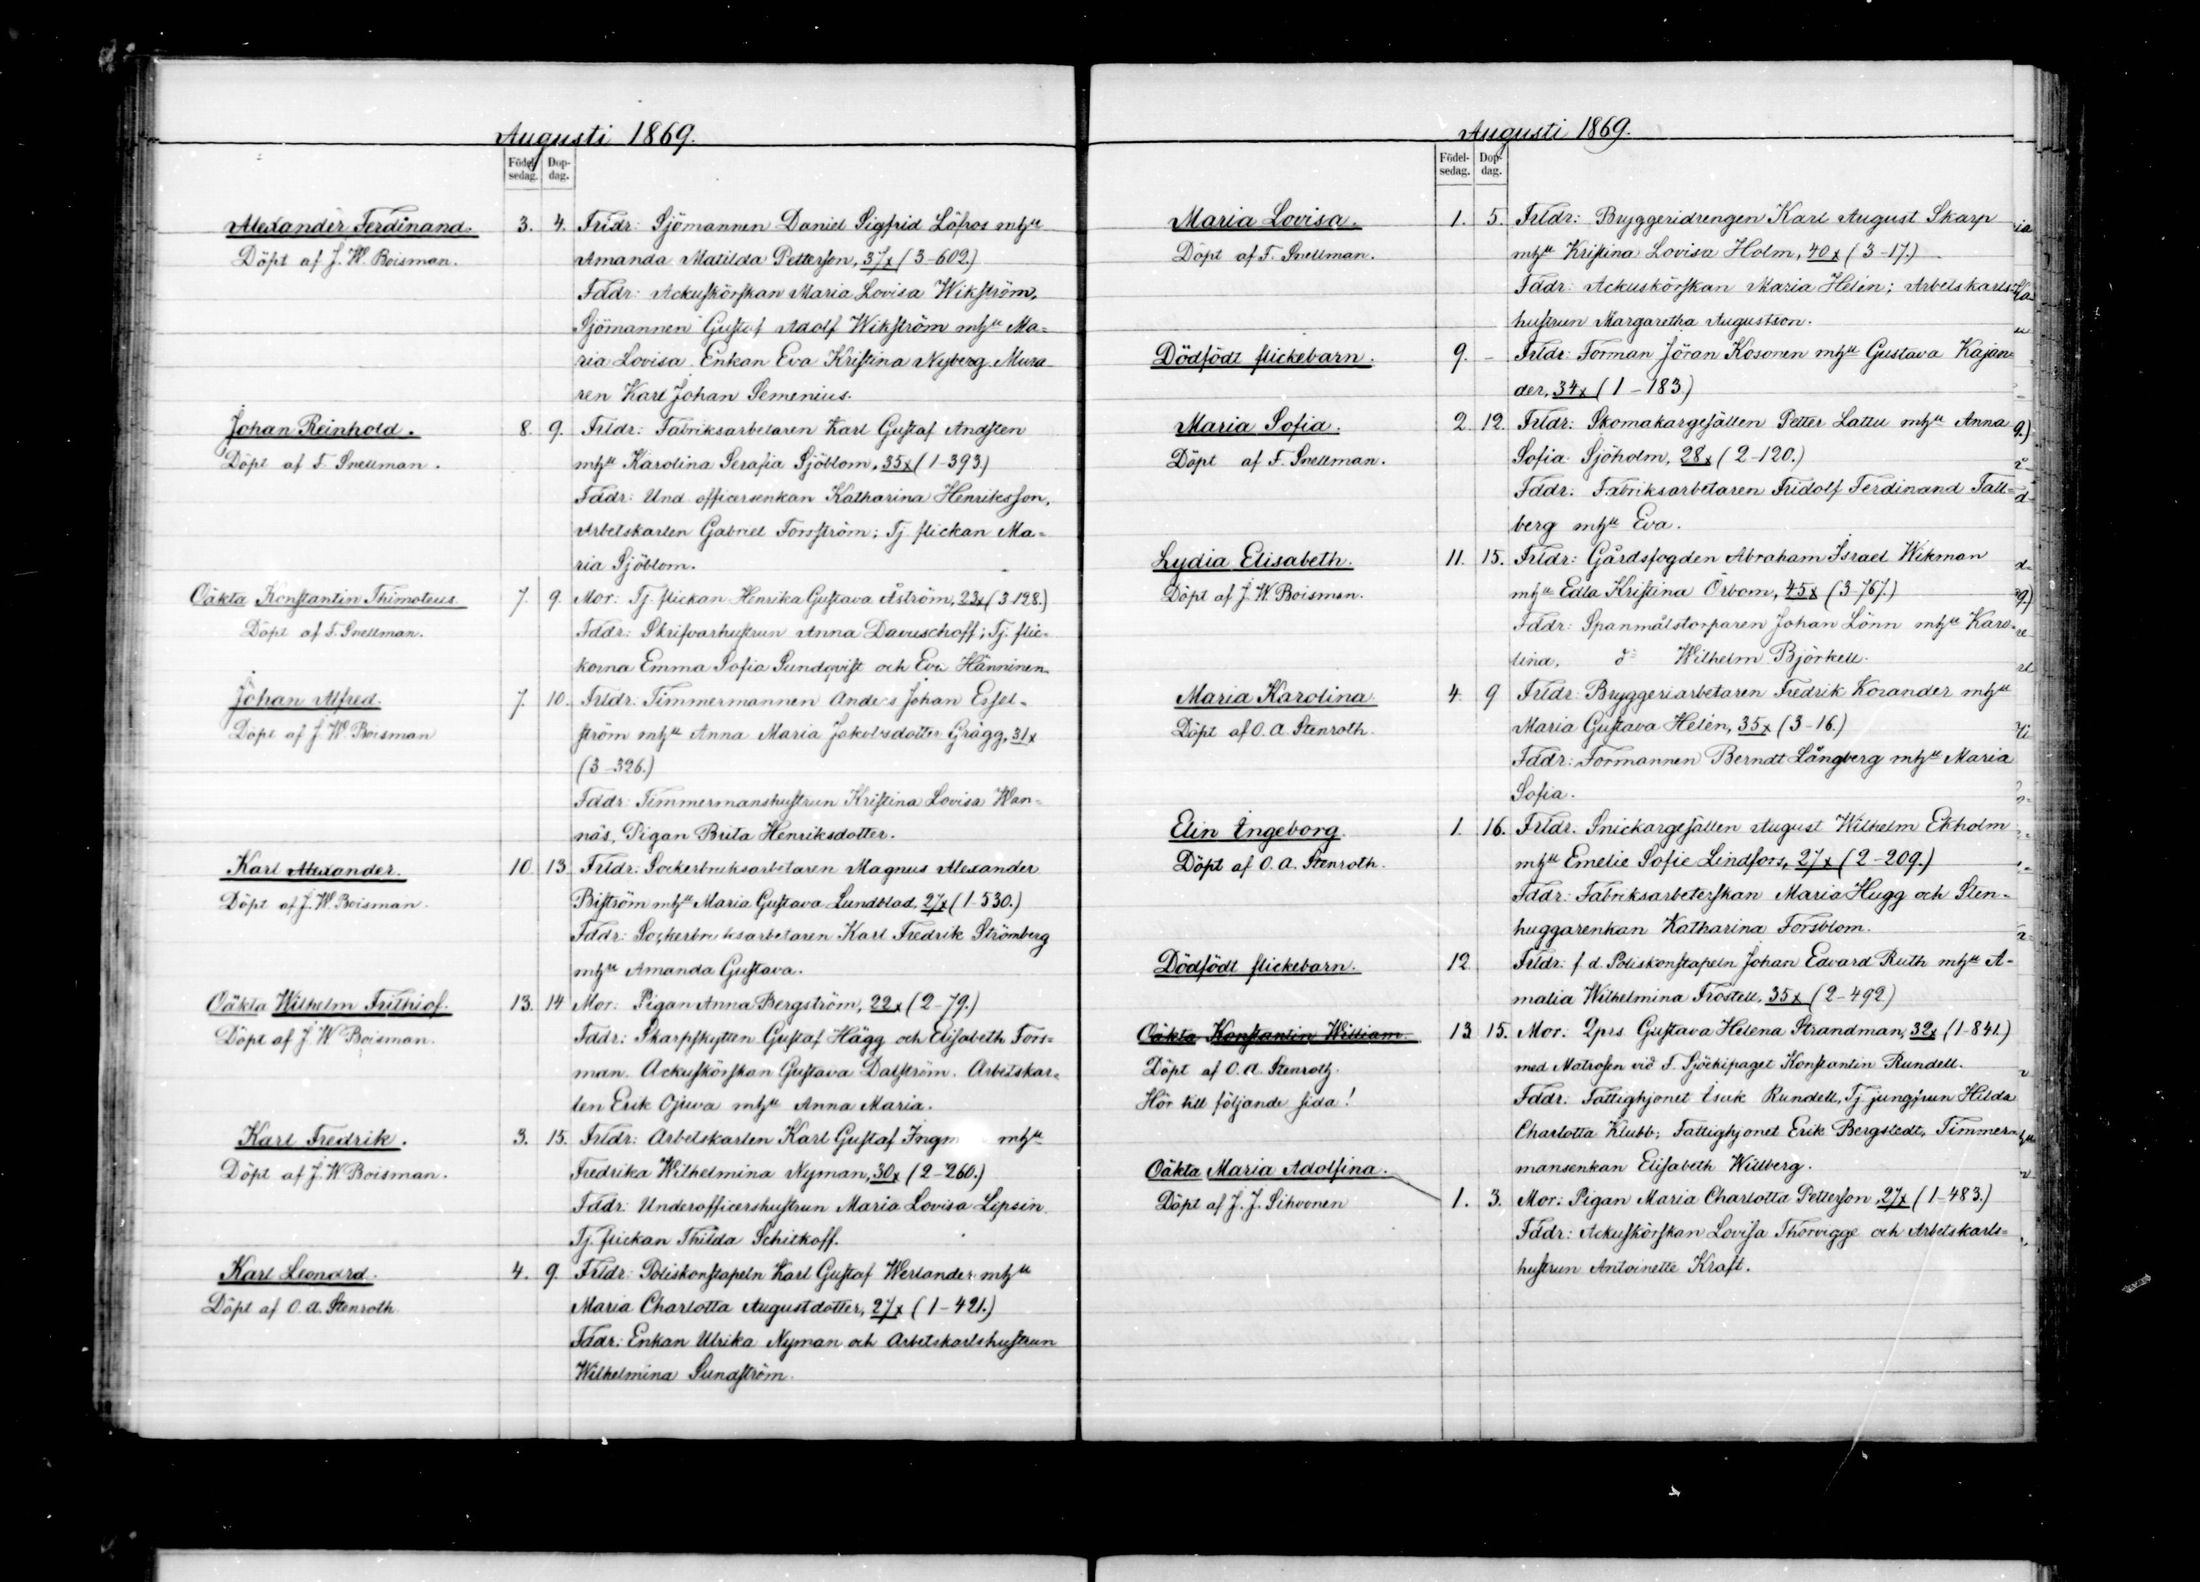 Augusti 1869.
Födel-
sedag.
Dop-
dag.
Alexander Ferdinand. 3. 4. Frldr: Sjömannen Daniel Sigfrid Löfros mhu
Döpt af J. W. Boisman. Amanda Matilda Petterson, 37x (3-602.)
Fddr: Ackuskörskan Maria Lovisa Wikström,
Sjömannen Gustaf Adolf Wikström mhu Ma=
ria Lovisa. Enkan Eva Kristina Nyberg. Mura
ren Karl Johan Semenius.
Johan Reinhold. 8. 9. Frldr: Fabriksarbetaren Karl Gustaf Andsten
Döpt af F. Snellman. mhu Karolina Serafia Sjöblom, 35x (1-393.)
Fddr: Und officersenkan Katharina Henriksson,
Arbetskarlen Gabriel Forsström; Tj. flickan Ma=
ria Sjöblom.
Oäkta Konstantin Thimoteus. 7. 9. Mor: Tj. flickan Henrika Gustava Åström, 23x (3-128.)
Döpt af F. Snellman. Fddr: Skrifvarhustrun Anna Davuschoff; Tj. flic=
korna Emma Sofia Sundqvist och Eva Hänninen.
Johan Alfred. 7. 10. Frldr: Timmermannen Anders Johan Essel-
Döpt af J. W. Boisman ström mhu Anna Maria Jakobsdotter Grägg, 31x
(3-326.)
Fddr: Timmermanshustrun Kristina Lovisa Wan=
näs, Pigan Brita Henriksdotter.
Karl Alexander. 10 13 Frldr: Sockerbruksarbetaren Magnus Alexander
Döpt af J. W. Boisman. Biström mhu Maria Gustava Lundblad, 27x (1-530.)
Fddr: Sockerbruksarbetaren Karl Fredrik Strömberg
mhu Amanda Gustava.
Oäkta Wilhelm Frithiof. 13. 14 Mor: Pigan Anna Bergström, 22x (2-79.)
Döpt af J. W. Boisman. Fddr: Skarpskytten Gustaf Hägg och Elisabeth Fors=
man. Ackuskörskan Gustava Dalström. Arbetskar=
len Erik Ojuva mhu Anna Maria.
Karl Fredrik. 3. 15. Frldr: Arbetskarlen Karl Gustaf Ingm mhu
Döpt af J. W. Boisman. Fredrika Wilhelmina Nyman, 30x (2-260.)
Fddr: Underofficershustrun Maria Lovisa Lipsin.
Tj. flickan Thilda Schitkoff.
Karl Leonard. 4. 9. Frldr: Poliskonstapeln Karl Gustaf Werlander mhu
Döpt af O. A. Stenroth. Maria Charlotta Augustdotter, 27x (1-421.)
Fddr: Enkan Ulrika Nyman och Arbetskarlshustrun
Wilhelmina Sundström.
Augusti 1869.
Födel-
sedag.
Dop-
dag.
Maria Lovisa. 1. 5. Frldr: Bryggeridrengen Karl August Skarp
Döpt af F. Snellman. mhu Kristina Lovisa Holm, 40x (3-17.)
Fddr: Ackuskörskan Maria Helén; Arbetskarls=
hustrun Margaretha Augustson.
Dödfödt flickebarn. 9. - Frldr: Forman Jöran Kosonen mhu Gustava Kajan=
der, 34x (1-183.)
Maria Sofia. 2 12. Frldr: Skomakargesällen Petter Lattu mhu Anna
Döpt af F. Snellman. Sofia Sjöholm, 28x (2-120.)
Fddr: Fabriksarbetaren Fridolf Ferdinand Tall=
berg mhu Eva.
Lydia Elisabeth. 11. 15. Frldr: Gårdsfogden Abraham Israel Wikman
Döpt af J. W. Boisman. mhu Edla Kristina Örbom, 45x (3-767.)
Fddr: Spanmålstorparen Johan Lönn mhu Karo=
lina, d:o Wilhelm Björkell.
Maria Karolina. 4. 9 Frldr: Bryggeriarbetaren Fredrik Korander mhu
Döpt af O. A. Stenroth. Maria Gustava Helén, 35x (3-16.)
Fddr: Formannen Berndt Långberg mhu Maria
Sofia.
Elin Ingeborg. 1. 16. Frldr. Snickargesällen August Wilhelm Ekholm
Döpt af O. A. Stenroth. mhu Emelie Sofie Lindfors, 27x (2-209.)
Fddr: Fabriksarbeterskan Maria Hugg och Sten-
huggarenkan Katharina Forsblom.
Dödfödt flickebarn. 12. Frldr: f. d. Poliskonstapeln Johan Edvard Ruth mhu A-
malia Wilhelmina Frostell, 35x (2-492)
Oäkta Konstantin William. 13 15. Mor: Qprs Gustava Helena Strandman, 32x (1-841.)
Döpt af O. A. Stenroth. med Matrosen vid F. Sjöekipaget Konstantin Rundell.
Hör till följande sida! Fddr: Fattighjonet Isak Rundell, Tj. jungfrun Hilda
Charlotta Klubb; Fattighjonet Erik Bergstedt, Timmer=
mansenkan Elisabeth Willberg.
Oäkta Maria Adolfina. 1. 3. Mor: Pigan Maria Charlotta Petterson, 27x (1-483.)
Döpt af J. J. Sihvonen Fddr: Ackuskörskan Lovisa Thorvigge och Arbetskarls=
hustrun Antoinette Kraft.